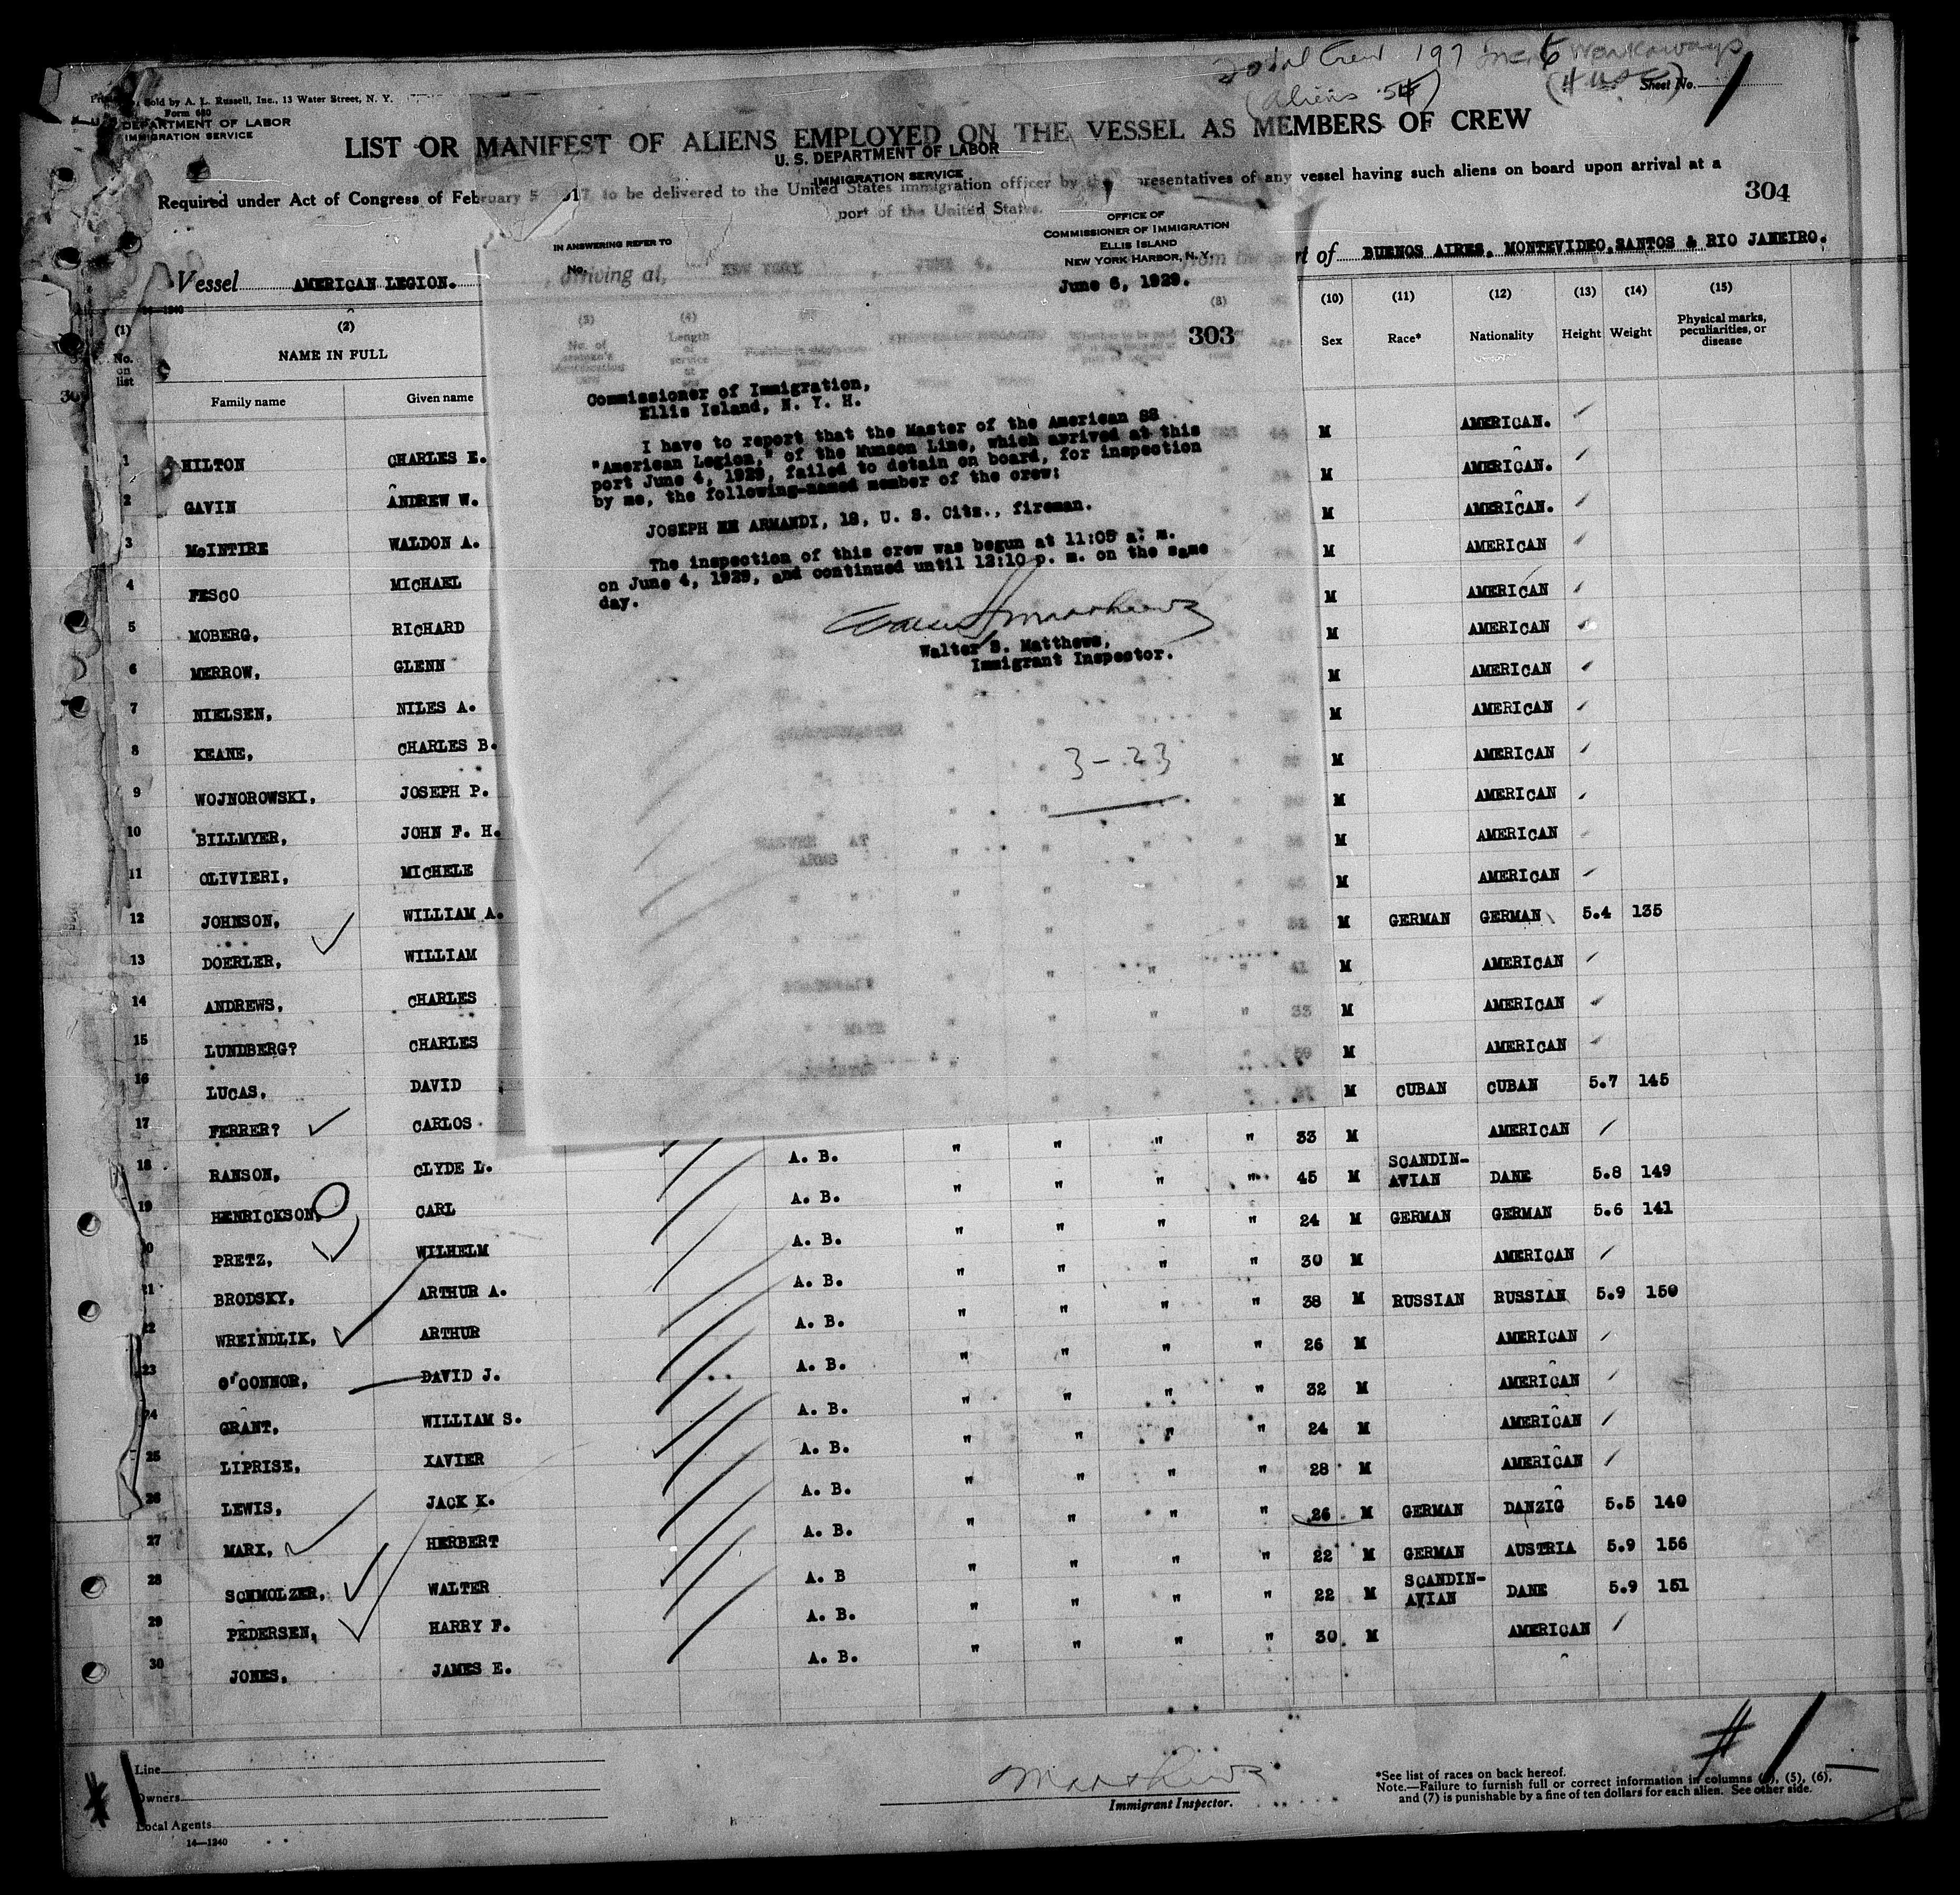 Total Crew 197 inc. 6 Workaways
(Aliens 54) (4 USC)
Sold by A. L. Russell, Inc., 13 Water Street, N. Y.
Form 680
DEPARTMENT OF LABOR
IMMIGRATION SERVICE
Sheet No. 1
LIST OR MANIFEST OF ALIENS EMPLOYED ON THE VESSEL AS MEMBERS OF CREW
Required under Act of Congress of February 5 1917, to be delivered to the United States immigration officer by the representatives of any vessel having such aliens on board upon arrival at a
port of the United States.
304
Vessel AMERICAN LEGION. , arriving at, NEW YORK , JUNE 4, from the port of BUENOS AIRES, MONTEVIDEO, SANTOS & RIO JANEIRO.
U. S. DEPARTMENT OF LABOR
IMMIGRATION SERVICE
OFFICE OF
COMMISSIONER OF IMMIGRATION
ELLIS ISLAND
NEW YORK HARBOR, N. Y.
IN ANSWERING REFER TO
No.
June 6, 1929.
303
Commissioner of Immigration,
Ellis Island, N. Y. H.
I have to report that the Master of the American SS
"American Legion," of the Munson Line, which arrived at this
port June 4, 1929, failed to detain on board, for inspection
by me, the following-named member of the crew:
JOSEPH ARMANDI, 18, U. S. Citz., fireman.
The inspection of this crew was begun at 11:05 a. m.
on June 4, 1929, and continued until 12:10 p. m. on the same
day.
Walter S. Matthews,
Immigrant Inspector.
3-23
(1) (2) (3) (4) (8) (10) (11) (12) (13) (14) (15)
No. on list NAME IN FULL Sex Race* Nationality Height Weight Physical marks, peculiarities, or disease
Family name Given name
1 HILTON CHARLES E. M AMERICAN.
2 GAVIN ANDREW W. M AMERICAN.
3 McINTIRE WALDON A. M AMERICAN.
4 FESCO MICHAEL M AMERICAN
5 MOBERG, RICHARD M AMERICAN
6 MERROW, GLENN M AMERICAN
7 NIELSEN, NILES A. M AMERICAN
8 KEANE, CHARLES B. M AMERICAN
9 WOJNOROWSKI, JOSEPH P. M AMERICAN
10 BILLMYER, JOHN F. H. M AMERICAN
11 OLIVIERI, MICHELE M AMERICAN
12 JOHNSON, WILLIAM A. M AMERICAN
13 DOERLER, WILLIAM M GERMAN GERMAN 5.4 135
14 ANDREWS, CHARLES 41 M AMERICAN
15 LUNDBERG? CHARLES 33 M AMERICAN
16 LUCAS, DAVID M AMERICAN
17 FERRER? CARLOS M CUBAN CUBAN 5.7 145
18 RANSON, CLYDE L. A. B. " " " " 33 M AMERICAN
19 HENRICKSON, CARL A. B. " " " " 45 M SCANDIN-AVIAN DANE 5.8 149
20 PRETZ, WILHELM A. B. " " " " 24 M GERMAN GERMAN 5.6 141
21 BRODSKY, ARTHUR A. A. B. " " " " 30 M AMERICAN
22 WREINDLIK, ARTHUR A. B. " " " " 38 M RUSSIAN RUSSIAN 5.9 150
23 O'CONNOR, DAVID J. A. B. " " " " 26 M AMERICAN
24 GRANT, WILLIAM S. A. B. " " " " 32 M AMERICAN
25 LIPRISE, XAVIER A. B. " " " " 24 M AMERICAN
26 LEWIS, JACK K. A. B. " " " " 28 M AMERICAN
27 MARX, HERBERT A. B. " " " " 26 M GERMAN DANZIG 5.5 140
28 SCHMOLZER, WALTER A. B " " " " 22 M GERMAN AUSTRIA 5.9 156
29 PEDERSEN, HARRY F. A. B. " " " " 22 M SCANDIN-AVIAN DANE 5.9 151
30 JONES, JAMES E. A. B. " " " " 30 M AMERICAN
# 1
Line
Owners
Local Agents
14—1240
Matthews
Immigrant Inspector.
*See list of races on back hereof.
Note.—Failure to furnish full or correct information in columns (5), (6),
and (7) is punishable by a fine of ten dollars for each alien. See other side.